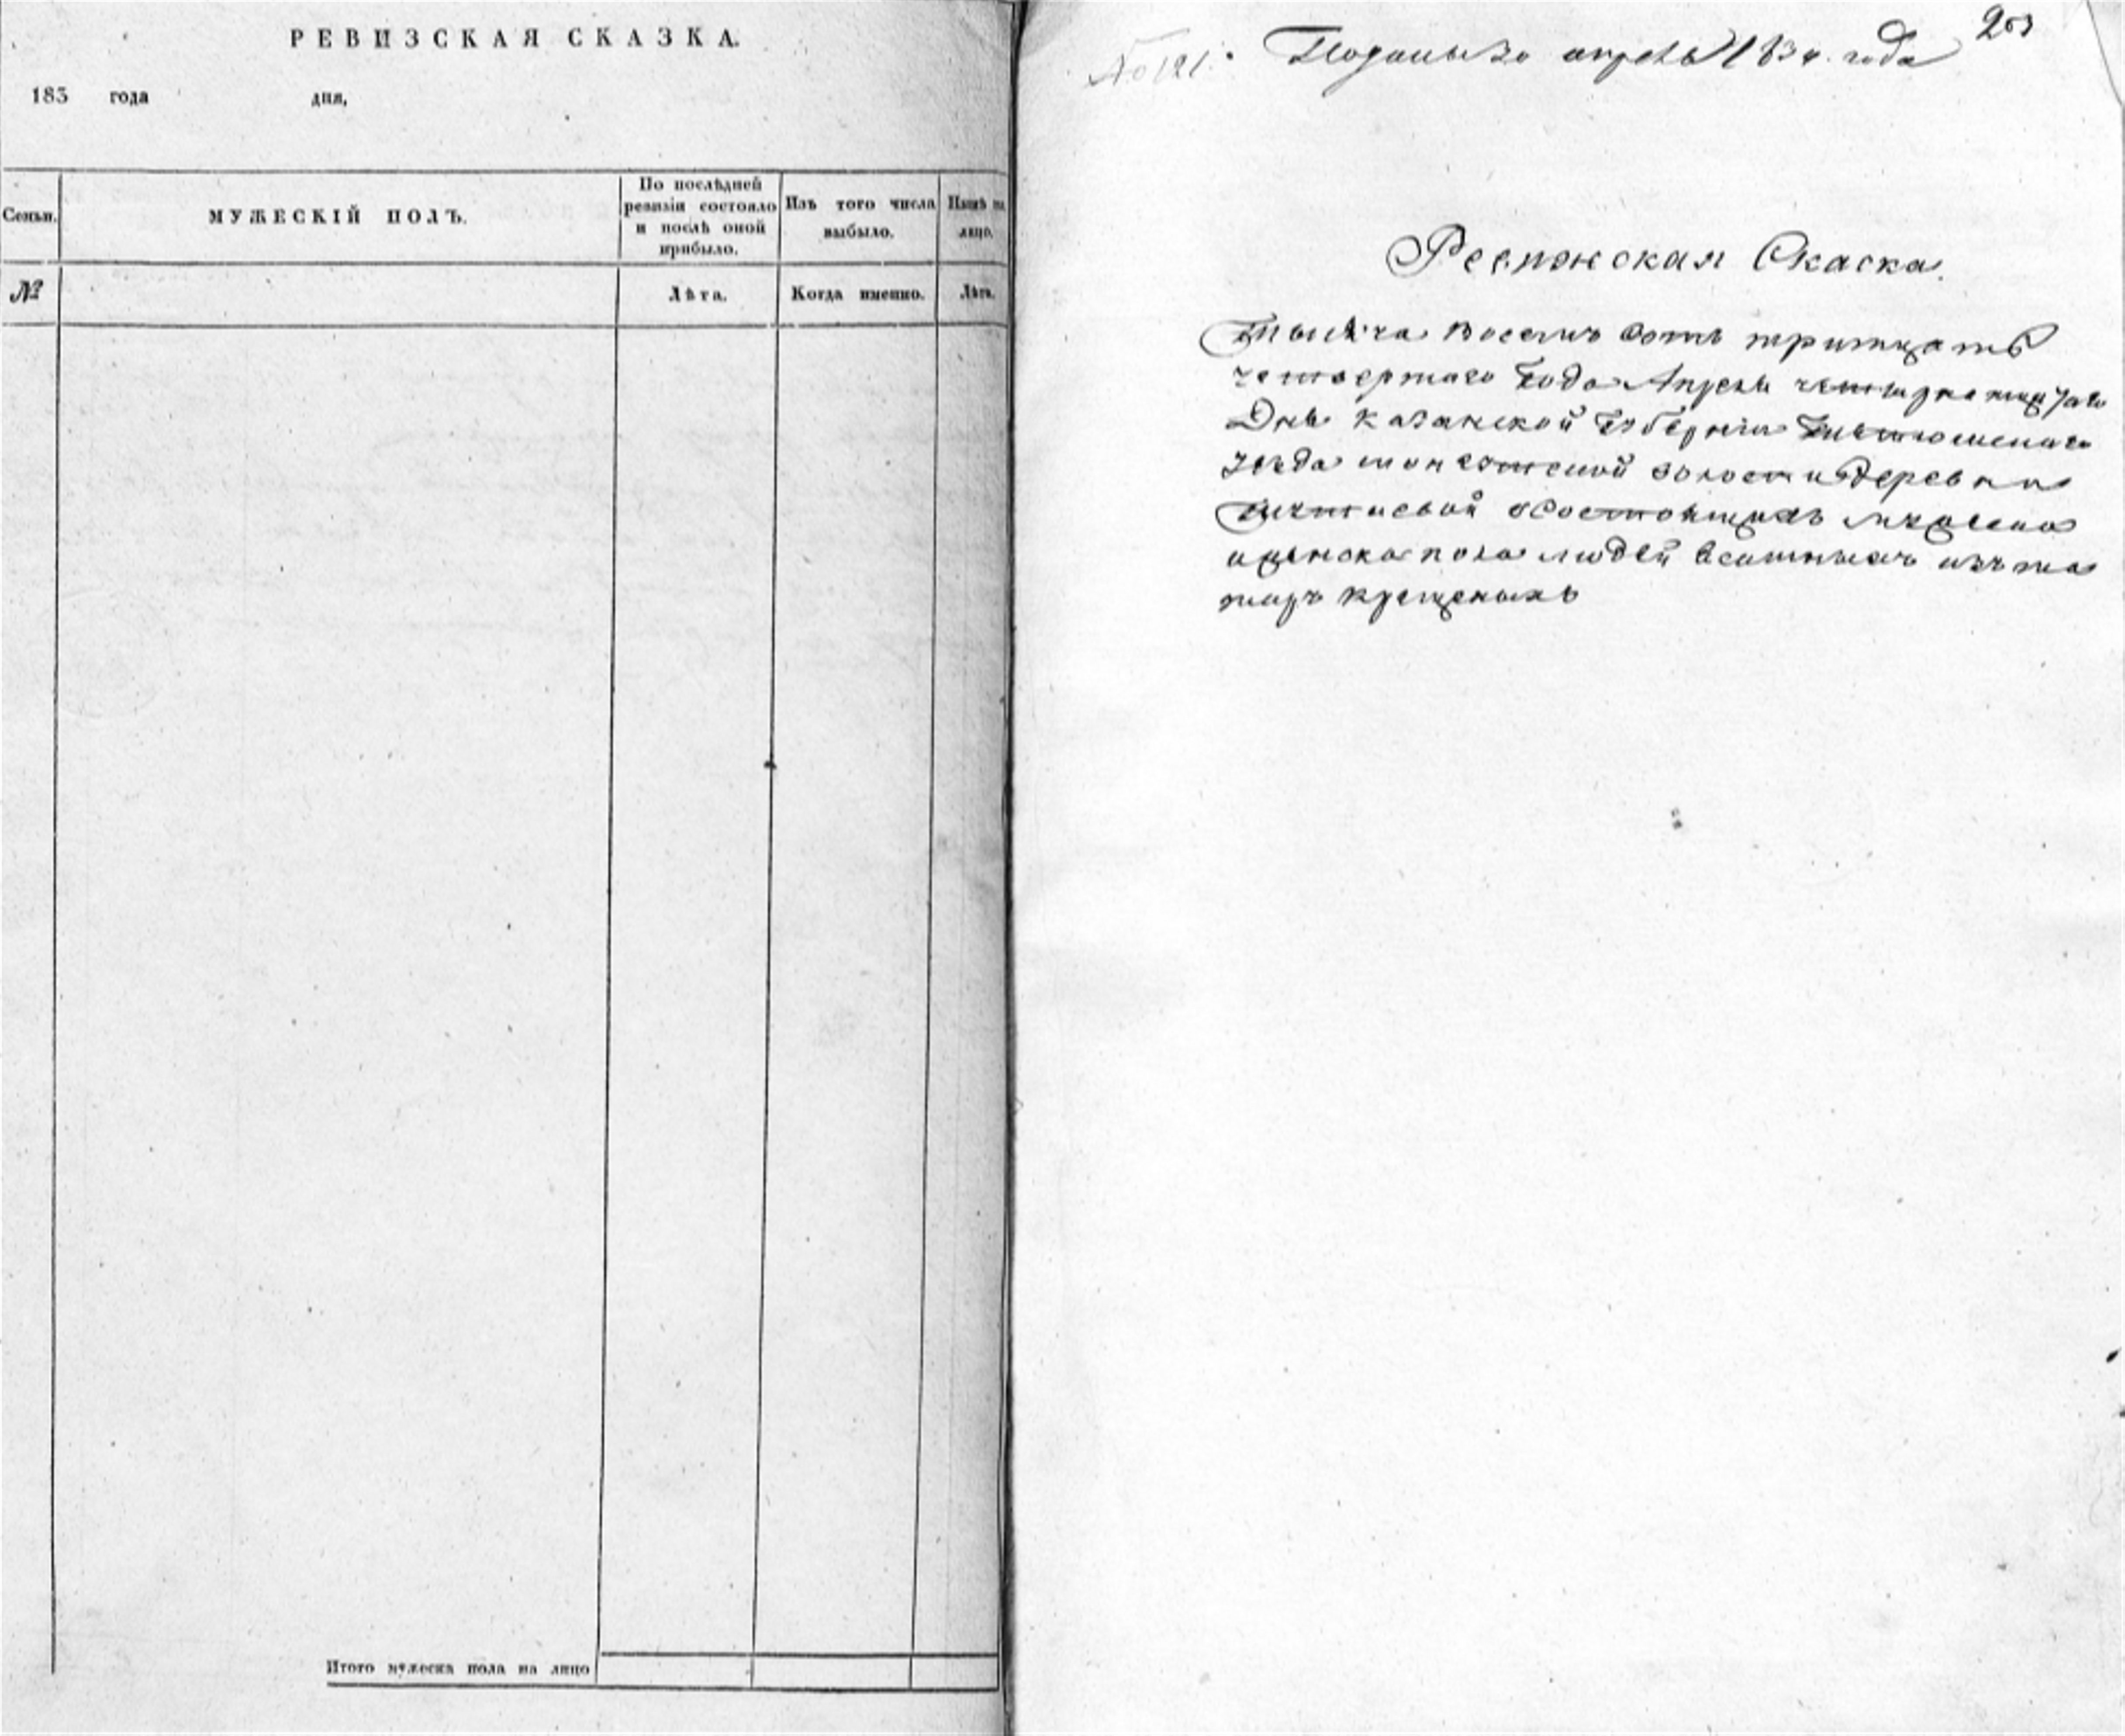 РЕВИЗСКАЯ СКАЗКА.
183 года дня,
Семьи.
МУЖЕСКІЙ ПОЛЪ.
По послѣдней
ревизіи состояло
и послѣ оной
прибыло.
Изъ того числа
выбыло.
Нынѣ на
лицо.
№
Лѣта.
Когда именно.
Лѣта.
Итого мужеска пола на лицо
203
№ 121. Поданы 30 апреля 1834 года
Ревижская Скаска.
Тысяча восемъ сотъ тритцать
четвертаго Года Апреля четырнатцатаго
Дня Казанской Губерніи
уезда волости деревни
о состоящихъ мужеска
иженска пола людей ясашныхъ изъ та
таръ крещеныхъ